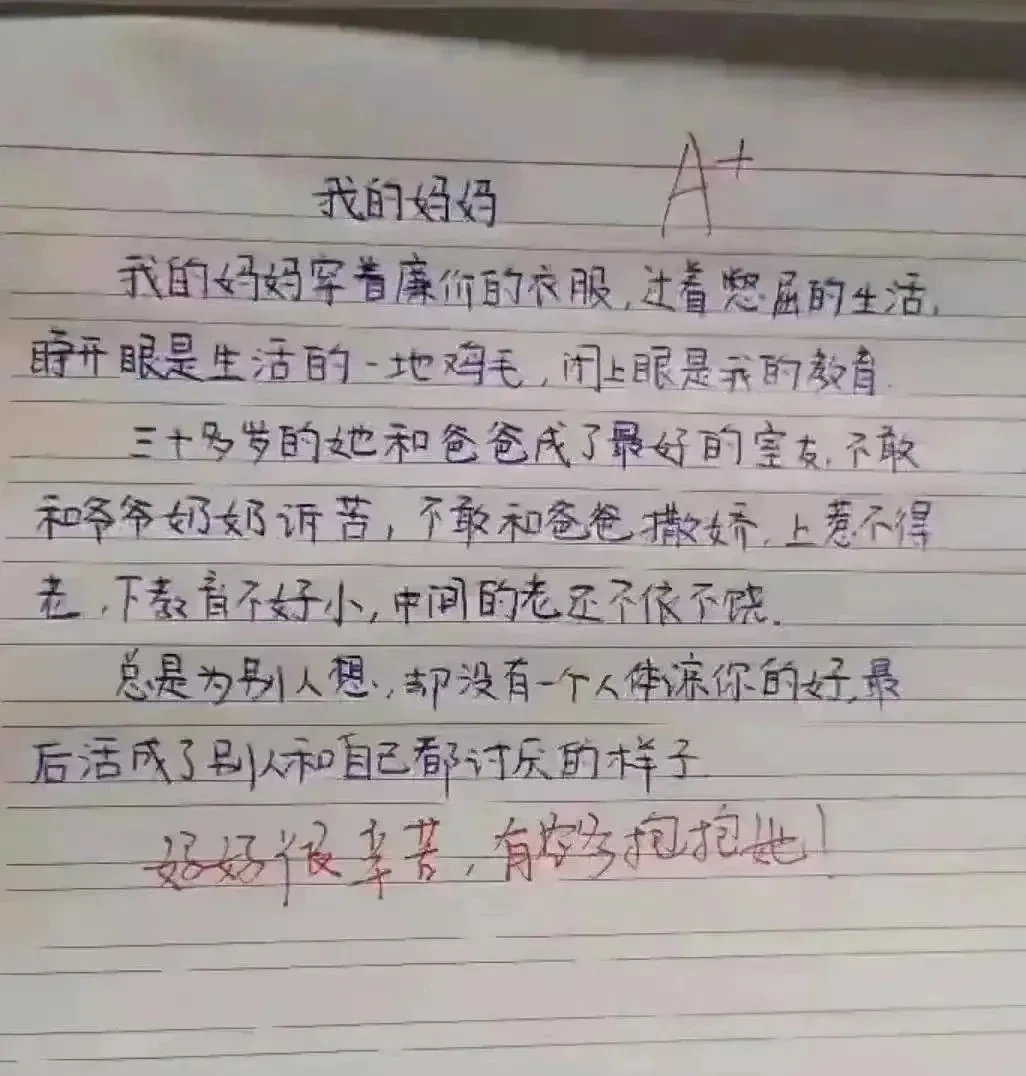 我的妈妈 A+
我的妈妈穿着廉价的衣服，过着憋屈的生活，
睁开眼是生活的一地鸡毛，闭上眼是我的教育
三十多岁的她和爸爸成了最好的室友，不敢
和爷爷奶奶诉苦，不敢和爸爸撒娇，上惹不得
老，下教育不好小，中间的老还不依不饶。
总是为别人想，却没有一个人体谅你的好，最
后活成了别人和自己都讨厌的样子
妈妈很辛苦，有空多抱抱她！